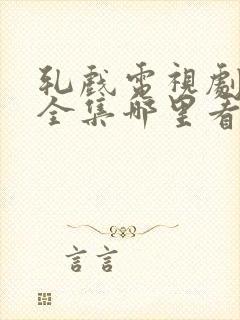 乳戲電視劇
全集哪里看
言言